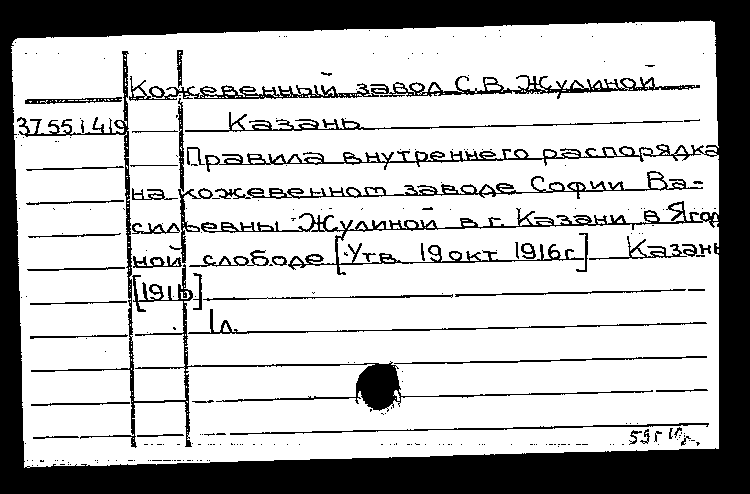 Кожевенный завод С.В. Жулиной
37.55.1.419 Казань
Правила внутреннего распорядка
на кожевенном заводе Софии Ва-
сильевны Жулиной в г. Казани, в Ягод
ной слободе [Утв. 19 окт 1916г.] Казань
[1916]
1л.